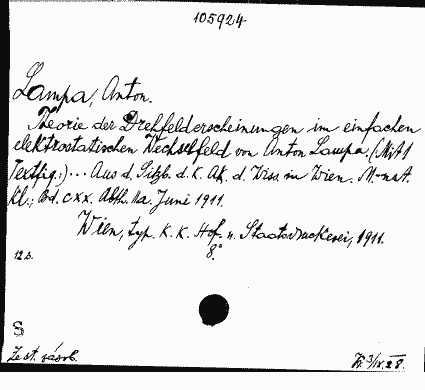 105924
Lampa, Anton.
Theorie der Drehfelderscheinungen im einfachen
elektrostatischen Wechselfeld von Anton Lampa. (Mit 1
Textfig.)... Aus d. Sitzb. d. K. Ak. d. Wiss. in Wien. M.-nat.
Kl.; Bd. CXX. Abth. IIa. Juni 1911.
Wien, typ. K. K. Hof u. Staatsdruckerei, 1911.
8°
12 s.
S
Ze st. zásob.
3/IX.28.